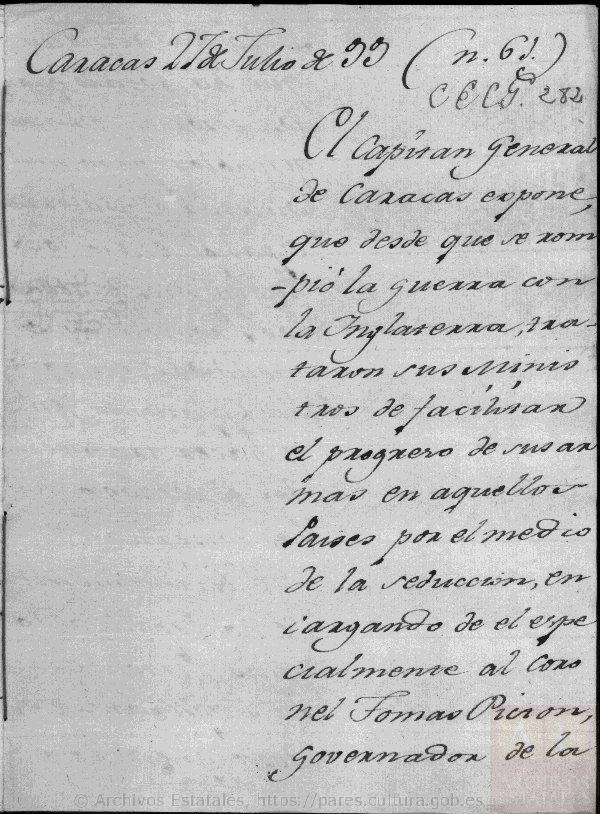 Caracas 27 de Julio de 99 (n. 61.)
282
El Capitan General
de Caracas expone,
que desde que se rom
-pió la guerra con
la Inglaterra, tra-
taron sus Minis
tros de facilitar
el progreso de sus ar
mas en aquellos
Paises por el medio
de la seduccion, en
cargando de el espe
cialmente al Coro
nel Tomas Picton,
Governador de la
© Archivos Estatales, https://pares.cultura.gob.es